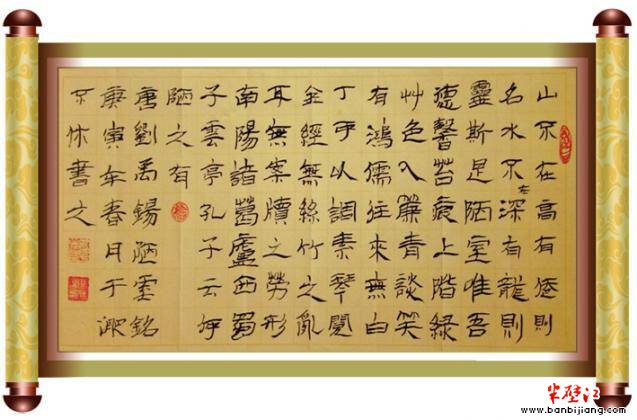 山不在高有僊則
名水不在深有龍則
靈斯是陋室唯吾
德馨苔痕上階綠
艸色入簾青談笑
有鴻儒往來無白
丁可以調素琴閱
金經無絲竹之亂
耳無案牘之勞形
南陽諸葛廬西蜀
子雲亭孔子云何
陋之有
唐劉禹錫陋室銘
庚寅年春月于
不休書之
半壁江
www.banbijiang.com